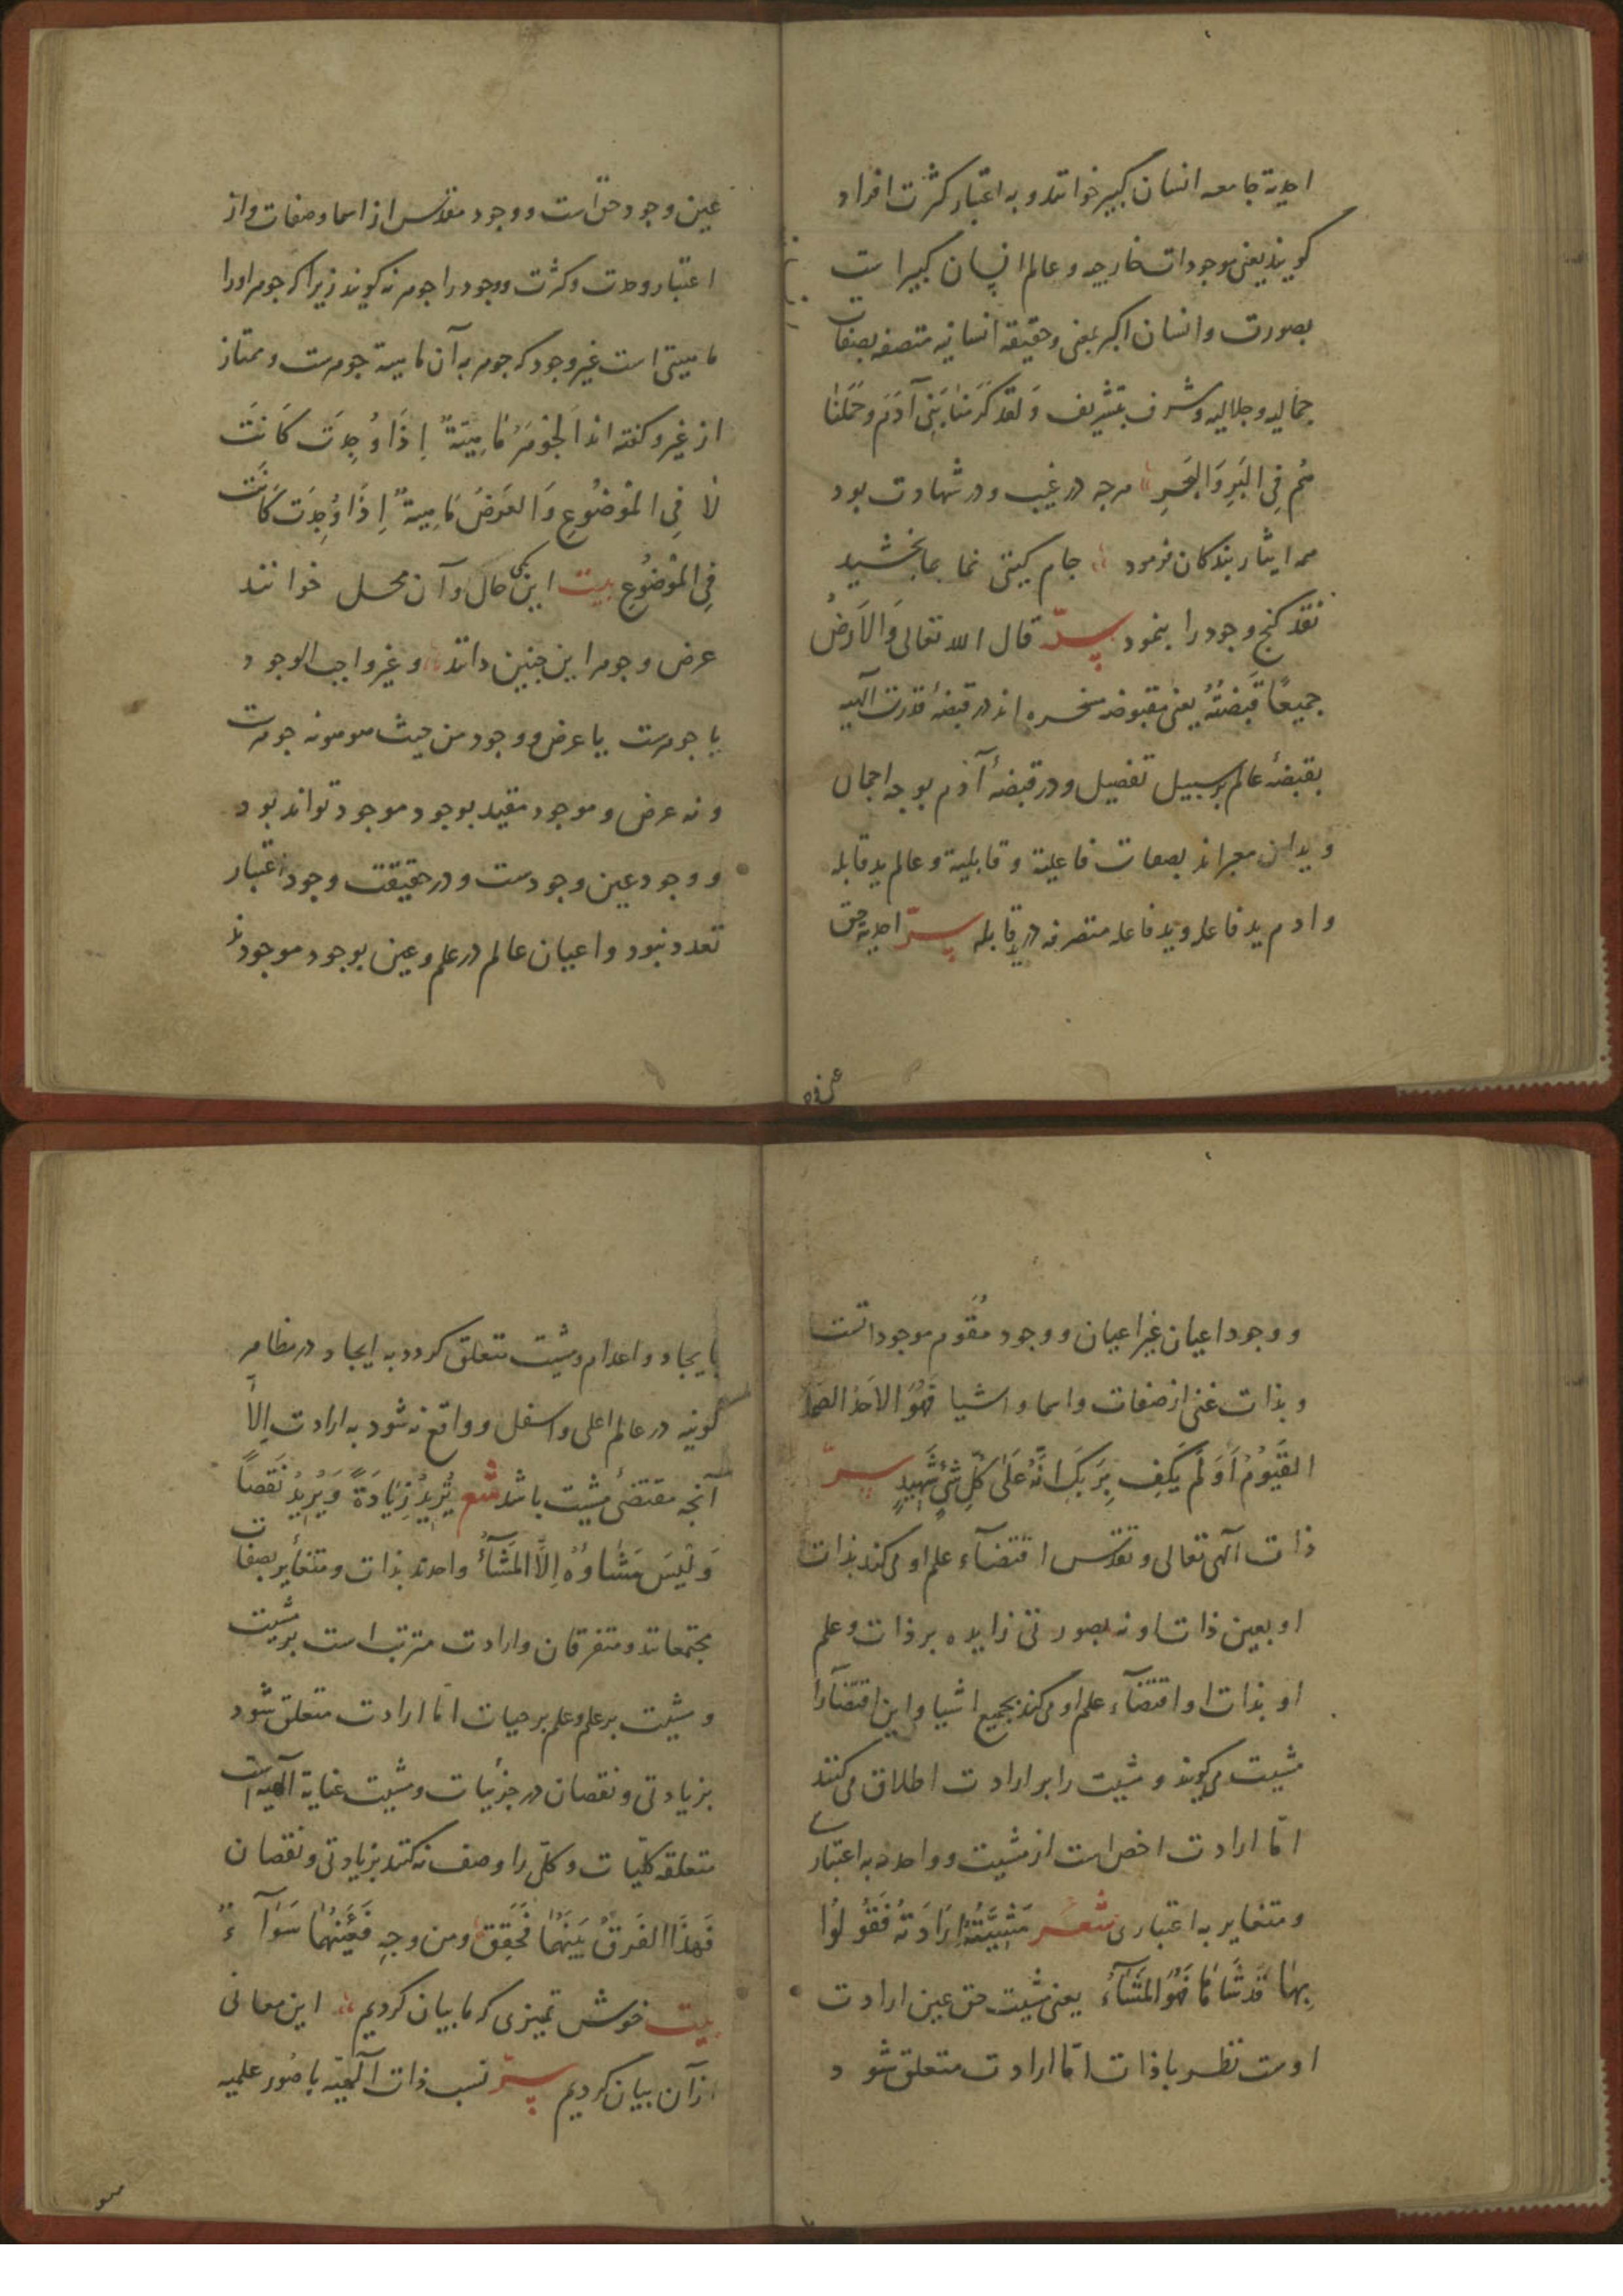 احدیة جامعه انسان کبیر خوانند و به اعتبار کثرت افراد
کویند یعنی موجودات خارجیه و عالم انسان کبیر است
بصورت و انسان اکبر بمعنی و حقیقة انسانیه متصفه بصفات
جمالیه و جلالیه و شرف بتشریف وَلَقد کَرَّمنَا بَنِی آدَمَ وَحَمَلنَا
هُم فِی البَرِّ وَالبَحرِ هرچه در غیب و در شهادت بود
همه ایثار بندکان فرمود جام کیتی نما بما بخشید
نقد کنج وجود را بنمود سرّ قال الله تعالی وَالاَرضُ
جَمِیعًا قَبضَتُهُ یعنی مقبوضه مسخره اند در قبضهٔ قدرت الهیه
بقبضهٔ عالم بر سبیل تفصیل و در قبضهٔ آدم بوجه اجمال
و یدان معبراند بصفات فاعلیة و قابلیة و عالم ید قابله
و ادم ید فاعله و ید فاعله متصرفه در ید قابله سرّ احدیة حق
عین وجود حق است و وجود مقدس از اسما و صفات و از
اعتبار وحدت و کثرت و وجود را جوهر نه کویند زیرا که جوهر اورا
ماهیتی است غیر وجود که جوهر به آن ماهیة جوهرست و ممتاز
از غیر و کفته اند اَلجَوهَرُ مَاهِیَةٌ اِذَا وُجِدَت کَانَت
لَا فِی المَوضُوعِ وَالعَرَضُ مَاهِیةٌ اِذَا وُجِدَت کَانَت
فِی المَوضُوعِ بیت این یکی حال و آن محل خوانند
عرض و جوهر این چنین دانند و غیر واجب الوجود
یا جوهرست یا عرض و وجود من حیث هو هو نه جوهرست
و نه عرض و موجود مقید بوجود موجود تواند بود
و وجود عین وجودست و در حقیقت وجود اعتبار
تعدد نبود و اعیان عالم در علم و عین بوجود موجودند
و وجود اعیان غیر اعیان و وجود مُقَوم موجوداتست
و بذات غنی از صفات و اسما و اشیا فَهُوَ الاَحَدُ الصَمَدُ
القَیُّومُ اَوَ لَم یَکفِ بِرَبِّکَ اَنَّهُ عَلَی کُلِّ شَیٍ شَهِیدٍ سرّ
ذات آلهی تعالی و تقدس اقتضآء علم او می کند بذات
او بعین ذات او نه بصورتی زایده بر ذات و علم
او بذات او اقتضآء علم او می کند بجمیع اشیا و این اقتضآرا
مشیت می کویند و مشیت را بر ارادت اطلاق می کنند
امّا ارادت اخص است از مشیت و واحدند به اعتباری
و متغایر به اعتباری شعر مَشِیَّتُهُ اِرَادَتُهُ فَقُولُوا
بِهَا قَد شَا مَا فَهُوَ المَشَآءُ یعنی مشیت حق عین ارادت
اوست نظر با ذات امّا ارادت متعلق شود
بایجاد و اعدام و مشیت متعلق کردد به ایجاد در مظاهر
کونیه در عالم اعلی و اسفل و واقع نه شود به ارادت اِلّا
آنچه مقتضیٔ مشیت باشد شعر یُرِیدُ زِیَادَةً وَ یُرِیدُ نَقصًا
وَ لَیسَ مَشَاوُهُ اِلَّا المَشَآءُ واحدند بذات و متغایر بصفات
مجتمعانند و متفرقان و ارادت مترتب است بر مشیت
و مشیت بر علم و علم بر حیات امّا ارادت متعلق شود
بزیادتی و نقصان در جزئیات و مشیت عنایة الهیه است
متعلقه کلیّات و کلّی را وصف نه کنند بزیادتی و نقصان
فَهَذَا الفَرقُ بَینَهُمَا فَحَقِّق و من وجهٍ فَعَینُهُمَا سَوَآءٌ
بیت خوش تمیزی که ما بیان کردیم این معانی
ازآن بیان کردیم سرّ نسب ذات آلهیّه با صُور علمیه